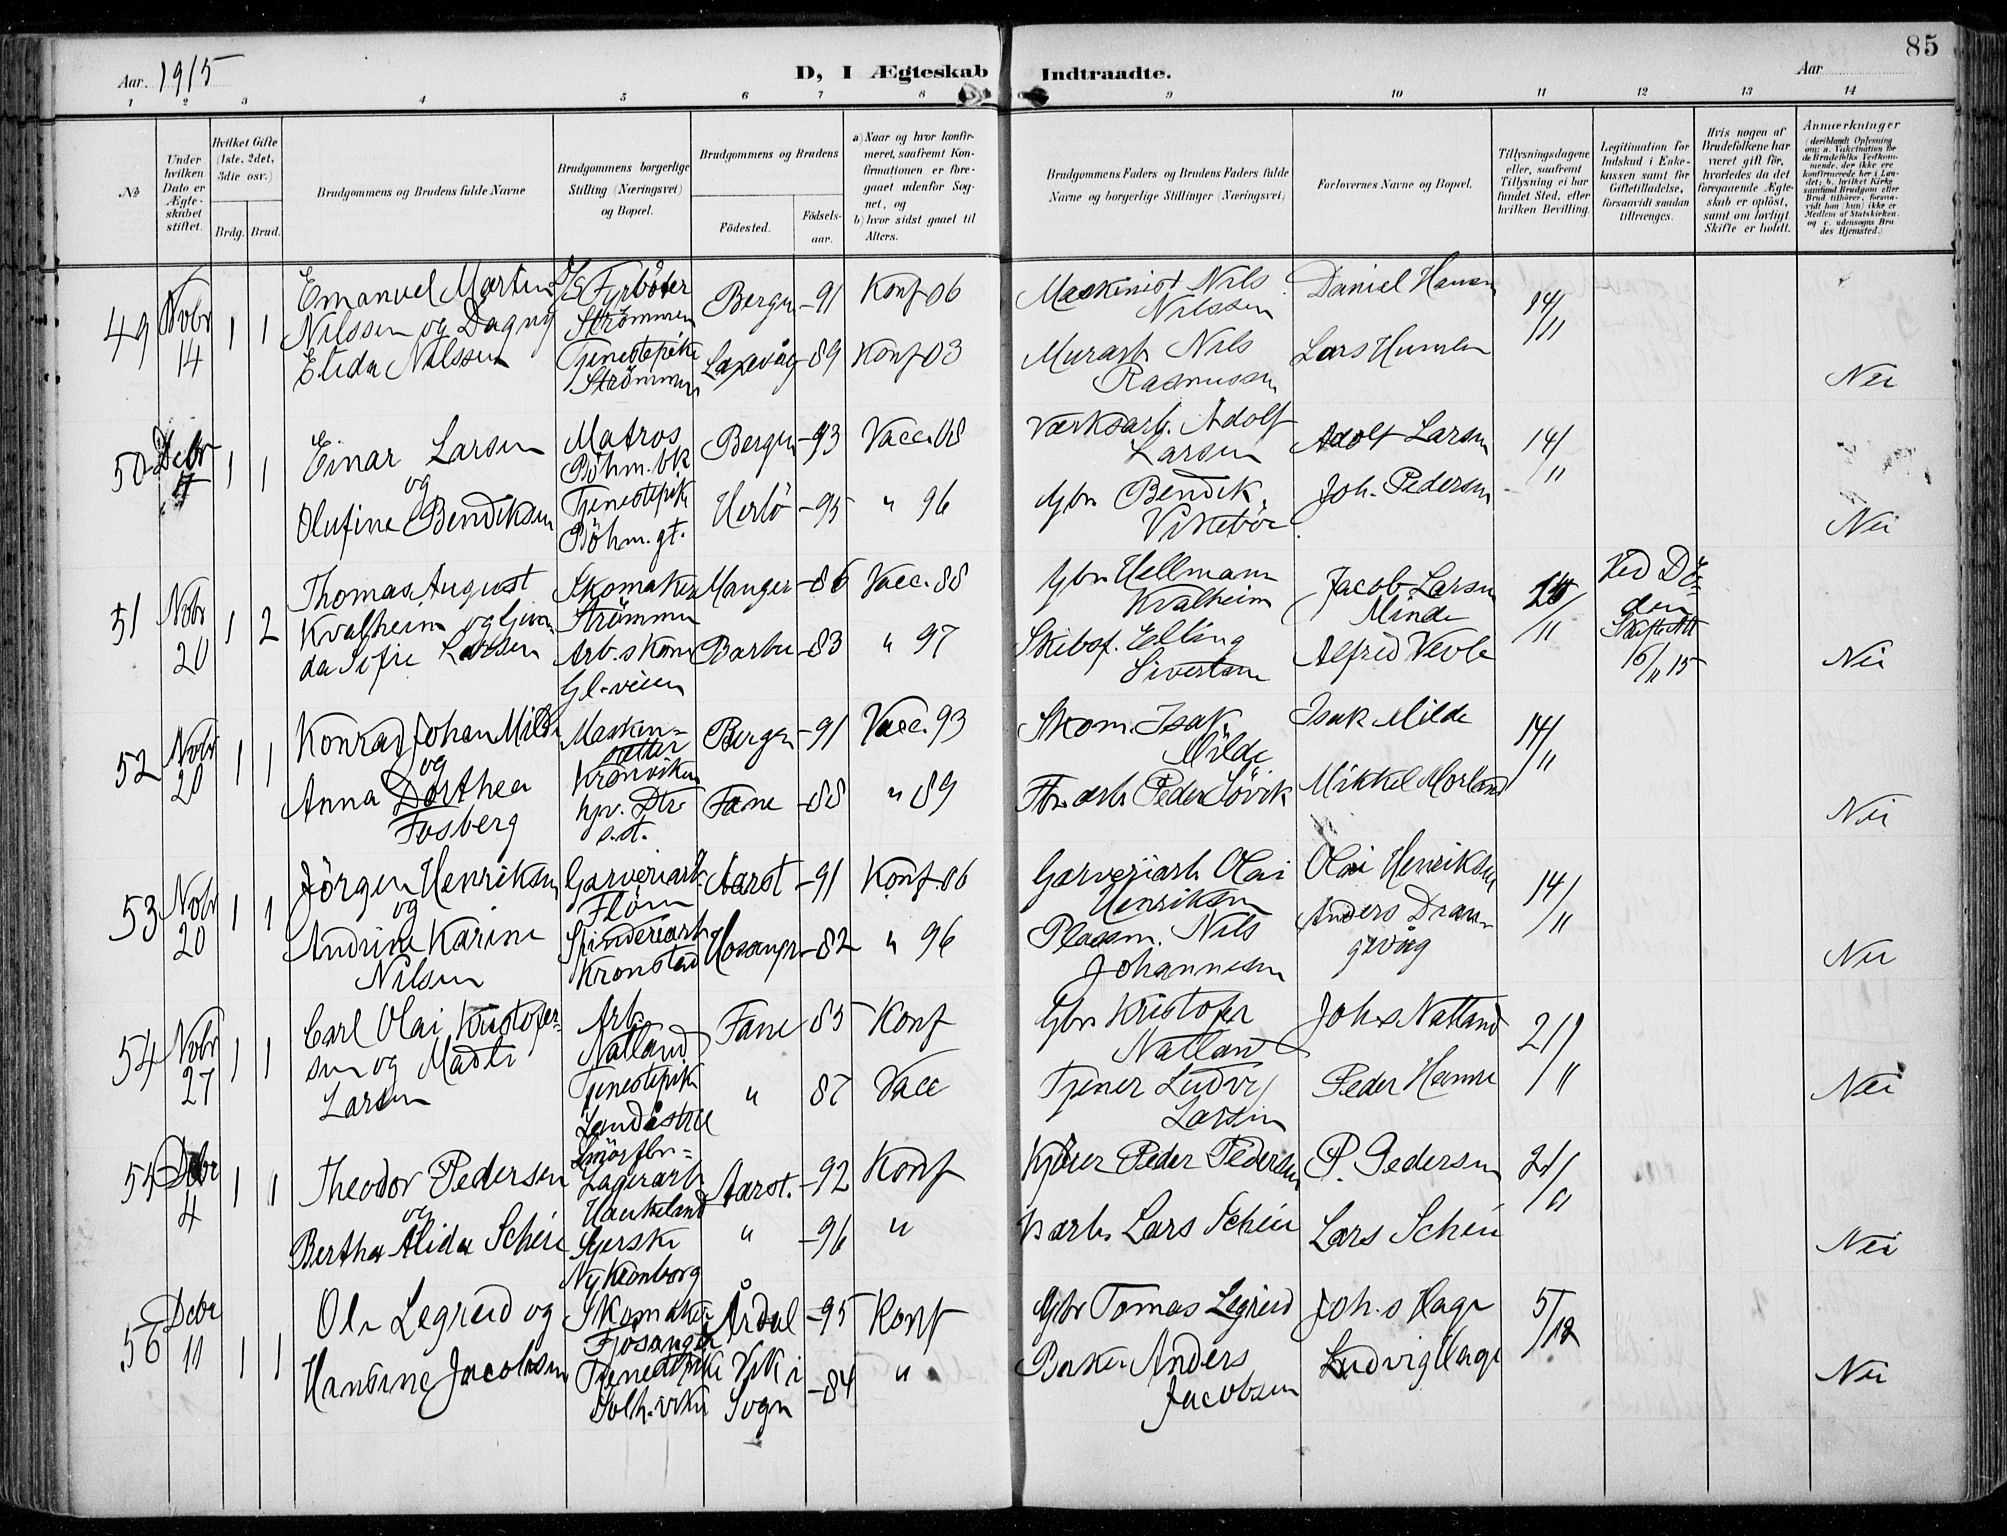 85
Aar. 1915
D, I Ægteskab Indtraadte.
Aar
1 2 3 4 5 6 7 8 9 10 11 12 13 14
No
Under hvilken Dato er Ægteskabet stiftet.
Hvilket Gifte (1ste, 2det, 3die osv.)
Brdg. Brud.
Brudgommens og Brudens fulde Navne
Brudgommens borgerlige Stilling (Næringsvei) og Bopæl.
Brudgommens og Brudens
Fødested.
Fødsels-aar.
a) Naar og hvor konfirmeret, saafremt Konfirmationen er foregaaet udenfor Sognet, og
b) hvor sidst gaaet til Alters.
Brudgommens Faders og Brudens Faders fulde Navne og borgerlige Stillinger (Næringsvei)
Forlovernes Navne og Bopæl.
Tillysningsdagene eller, saafremt Tillysning ei har fundet Sted, efter hvilken Bevilling.
Legitimation for Indskud i Enkekassen samt for Giftetilladelse, forsaavidt saadan tiltrænges.
Hvis nogen af Brudefolkene har været gift før, hvorledes da det foregaaende Ægteskab er opløst, samt om lovligt Skifte er holdt.
Anmærkninger
49 Novbr 14 1 1
Emanuel Martin
Nilssen og Dagny
Elida Nilssen
Fyrbøter
Strømmen
Tjenestepike
Strømmen
Bergen -91 Konf 06
Laxevåg -89 Konf 03
Maskinist Nils
Nilssen
Murarb. Nils
Rasmussen
Daniel Hansen
Lars Humlen
14/11
Nei
50 Debr 1 1
Einar Larsen
og
Olufine Bendiksen
Matros
Böhm. bk
Tjenestepik
Böhm. gt.
Bergen -93 Vacc. 08
Herlö -95 " 96
Værksarb. Adolf
Larsen
Gbr. Bendik
Vikebö
Adolf Larsen
Joh. Pedersen
14/11
Nei
51 Nobr 20 1 2
Thomas August
Kvalheim og Gun
da Sofie Larsen
Skomaker
Strömmen
Arb.s kone
Gl-veien
Manger -86 Vacc. 88
Barbu -83 " 97
Gbr. Hellmann
Kvalheim
Skibsf. Elling
Sivertsen
Jacob Larsen
Minde
Alfred Vevle
/11
Ved Dö-
den
Skifteatt
16/11 15
Nei
52 Novbr 20 1 1
Konrad Johan Milde
og
Anna Dorthea
Fosberg
Maskin-
Kronviken
hjv. Dtr
s.st.
Bergen -91 Vacc. 93
Fane -88 " 89
Skom. Isak
Milde
Fbr. arb. Peder Sövik
Isak Milde
Mikkel Morland
14/11
Nei
53 Nobr 20 1 1
Jörgen Henriksen
og
Andrine Karine
Nilsen
Garveriarb
Flöen
Spinderiarb
Kronstad
Aarst -91 Konf. 06
Hosanger -82 " 96
Garveriarb Olai
Henriksen
Pladsm. Nils
Johannesen
Olai Henriksen
Anders Dran-
gevåg
14/11
Nei
54 Nobr 27 1 1
Carl Olai Kristofer-
sen og Madli
Larsen
Arb.
Natland
Tjenestepik
Landåstræ
Fane 85 Konf
" 87 Vacc
Gbr. Kristofer
Natland
Tjener Ludvig
Larsen
Joh.s Natland
Peder Hamre
21/11
Nei
Debr
4 1 1
Theodor Pedersen
og
Bertha Alida Scheie
Smörfbr-
Lagerarb
Haukeland
Syerske
Ny Kronborg
Aarst. -92 Konf
" -96 "
Kjörer Peder Pedersen
arb Lars Scheie
P. Pedersen
Lars Scheie
21/11
Nei
56 Debr 11 1 1
Ole Legreid og
Hansine Jacobsen
Skomaker
Fjösanger
Tjenestpike
Solh.viken
Årdal -95 Konf
Vik i
Sogn -84 "
Gbr Tomas Legreid
Baker Anders
Jacobsen
Joh.s Hage
Ludvig Hage
5/12
Nei